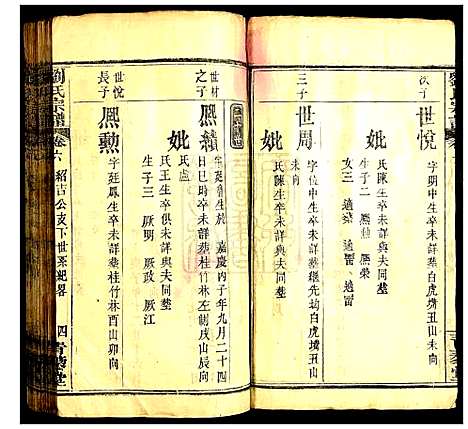 次子
世悅
字明中生卒未詳葬白虎墳丑山未向
妣
氏陳生卒未詳與夫同塋
生子二 熈勳 熈榮
女三 適
三子
世周
字位中生卒未詳葬繼先幼白虎墳丑山
未向
妣
氏陳生卒未詳與夫同塋
世材
之子
熈績
嘉慶丙子年九月二十四
日巳時卒未詳葬桂竹林左側戌山辰向
妣
氏盧
氏王生卒俱未詳與夫同塋
生子三 厥明 厥政 厥江
世悅
長子
熈勳
字廷鳳生卒未詳葬桂竹林酉山卯向
劉氏宗譜
卷六
紹吉公支下世系紀畧
四
青藜堂